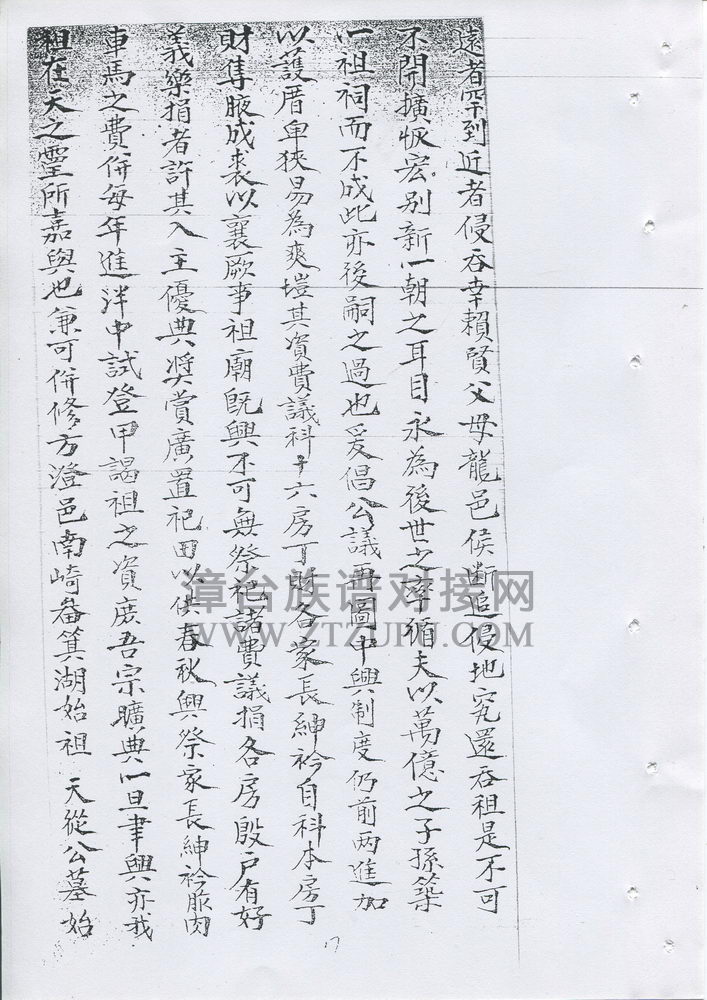 遠者罕到近者侵吞幸賴賢父母龍邑侯斷追侵地究還吞租是不可
不開擴恢宏別新一朝之耳目永為後世之率循夫以萬億之子孫築
一祖祠而不成此亦後嗣之過也爰倡公議再圖中興制度仍前兩進加
以護厝卑狹易為爽塏其資費議科六房丁財各家長紳衿自科本房丁
財隻腋成裘以襄厥事祖廟既興不可無祭祀諸費議捐各房殷戶有好
義樂捐者許其入主優典獎賞廣置祀田以供春秋興祭家長紳衿胙肉
車馬之費併每年進泮中試登甲謁祖之資庶吾宗曠典一旦聿興亦我
祖在天之靈所嘉與也兼可併修方澄邑南崎畚箕湖始祖 天從公墓始
17
漳台族谱对接网
WWW.ZTZUPU.COM